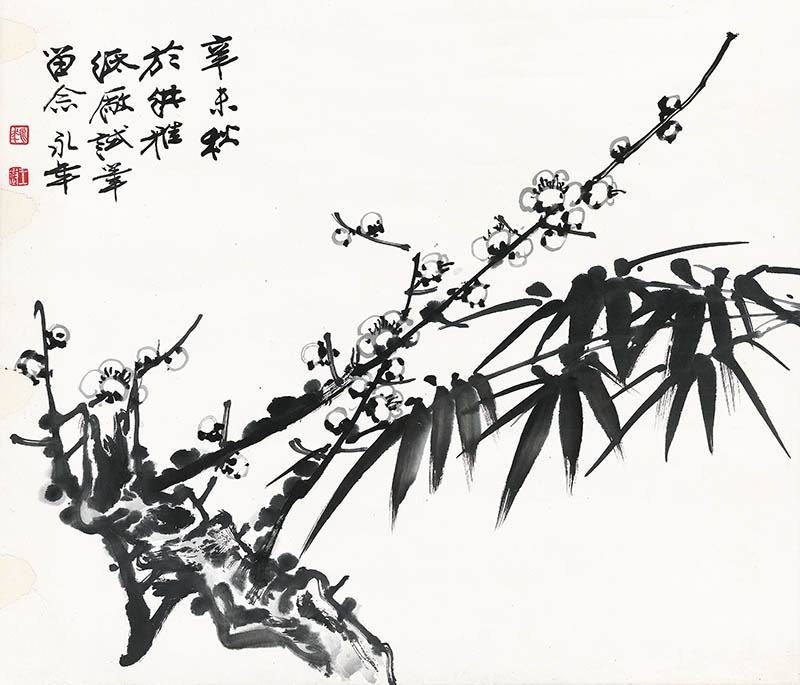 辛未秋
於洪雅
紙廠試筆
留念 永年